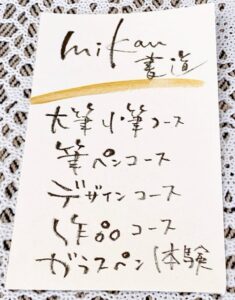 mikan
書道
大筆小筆コース
筆ペンコース
デザインコース
作品コース
ガラスペン体験